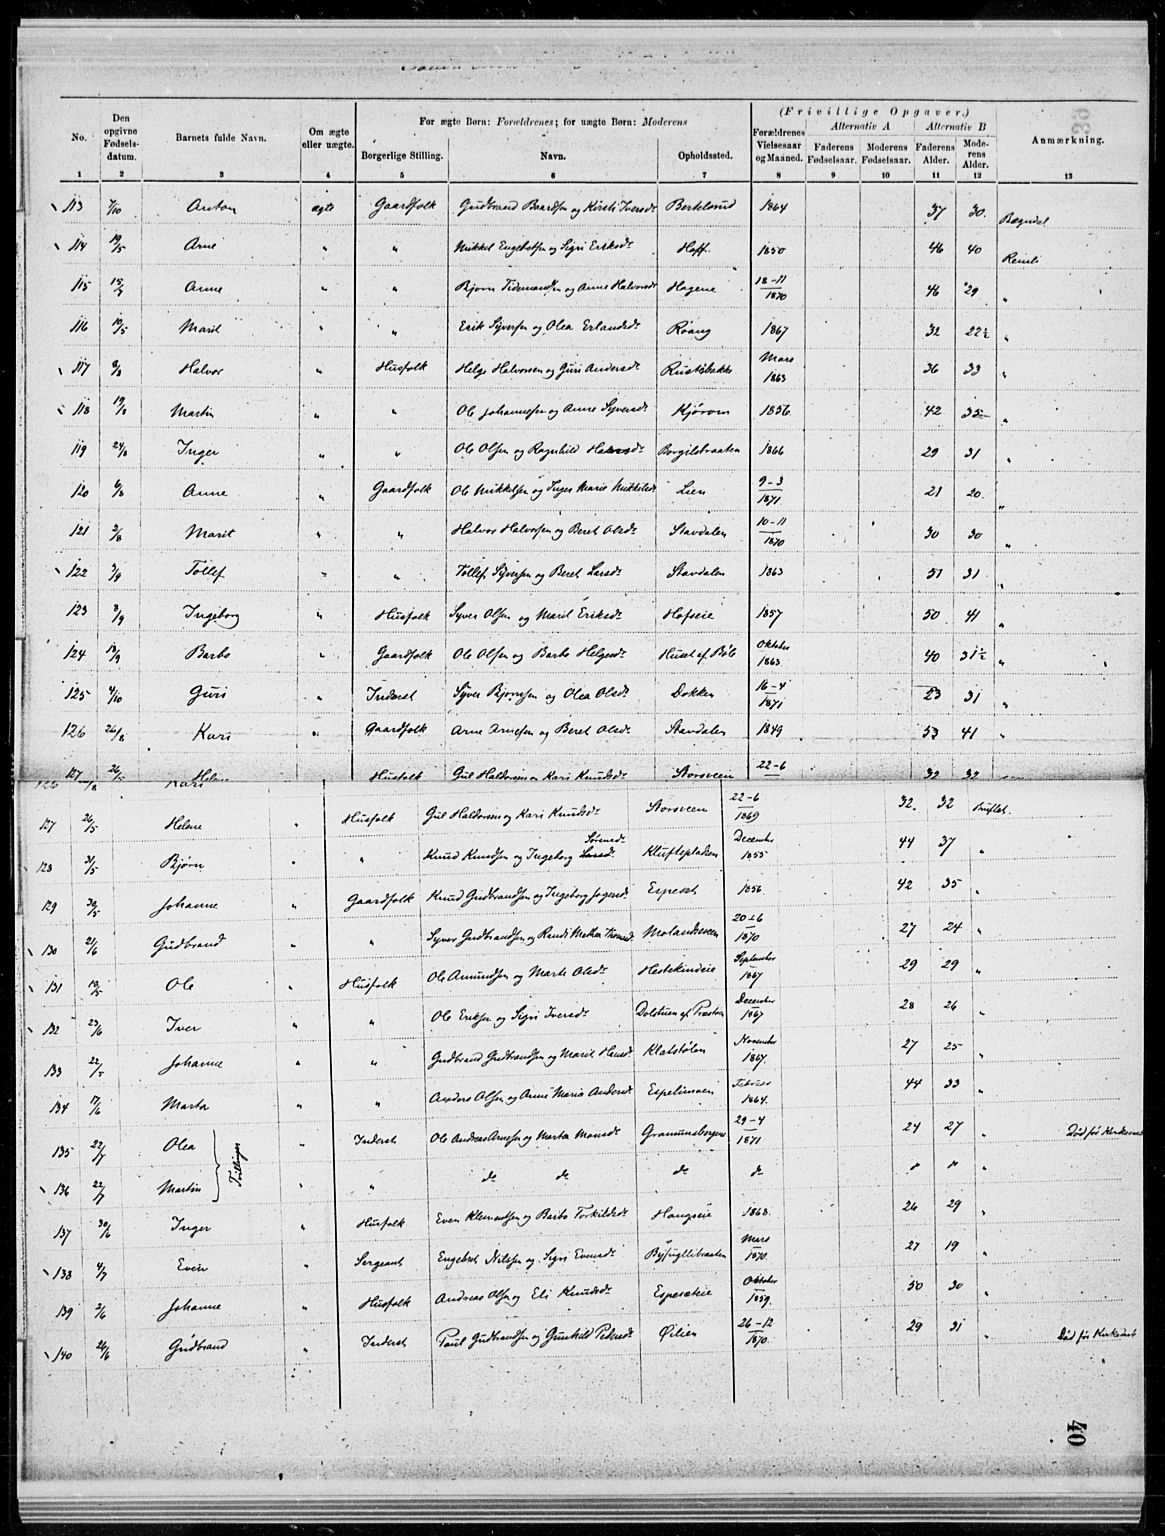 (Frivillige Opgaver.)
No. Den opgivne Fødselsdatum. Barnets fulde Navn. Om ægte eller uægte. For ægte Børn: Forældrenes; for uægte Børn: Moderens Forældrenes Vielsesaar og Maaned. Alternativ A Alternativ B Anmærkning.
Borgerlige Stilling. Navn. Opholdssted. Faderens Fødselsaar. Moderens Fødselsaar. Faderens Alder. Moderens Alder.
1 2 3 4 5 6 7 8 9 10 11 12 13
113 7/10 Anton ægte Gaardfolk Gudbrand Baardsen og Kirsti Iversdr Bertelsrud 1864 37 30. Bagndal
114 19/5 Arne " " Mikkel Engebretsen og Sigri Eriksdr Hoff. 1850 46 40 Reinli
115 15/7 Anne " " Bjørn Tidemandsen og Anne Halvorsdr Hagene 18-11 1870 46 29 "
116 10/5 Marit " " Erik Syversen og Olea Erlandsdr Roang 1867 32 22½ "
117 8/8 Halvor " Husfolk Helge Halvorsen og Guri Andersdr Rustebakke Mars 1863 36 33 "
118 19/8 Martin " " Ole Johannesen og Anne Syversdr Kjørom 1856 42 35 "
119 24/8 Inger " " Ole Olsen og Ragnhild Halvorsdr Borgilsbraaten 1866 29 31 "
120 6/8 Anne " Gaardfolk Ole Mikkelsen og Inger Marie Mikkelsdr Lien 9-3 1871 21 20. "
121 2/8 Marit " " Halvor Halvorsen og Beret Olsdr Stavdalen 10-11 1870 30 30 "
122 3/9 Tollef " " Tollef Syversen og Beret Larsdr Stavdalen 1863 51 31 "
123 8/9 Ingeborg " Husfolk Syver Olsen og Marit Eriksdr Hofseie 1857 50 41 "
124 13/9 Barbo " Gaardfolk Ole Olsen og Barbo Helgesdr Huset af Bøle Oktober 1863 40 31½ "
125 4/10 Guri " Inderst Syver Bjørnsen og Olea Olsdr Dokken 16-4 1871 23 31 "
126 26/8 Kari " Gaardfolk Arne Arnesen og Beret Olsdr Stavdalen 1849 53 41 "
127 26/5 Helene Husfolk Gul Haldorsen og Kari Knudsdr Storsveen 22-6 32 32
126 /8 Kari
127 26/5 Helene " Husfolk Gul Haldorsen og Kari Knudsdr Storsveen 22-6 1869 32. 32 Bruflat.
128 31/5 Bjørn " Knud Knudsen og Ingeborg Larsdr Sørensdr Kluftepladsen December 1855 44 37 "
129 30/5 Johanne " Gaardfolk Knud Gudbrandsen og Ingeborg Espeset 1856 42 35 "
130 21/6 Gudbrand " " Syver Gudbrandsen og Randi Mathea Molandsveen 20-6 1870 27 24 "
131 10/5 Ole " Husfolk Ole Amundsen og Marte Olsdr Hestekindeie September 1867 29 29 "
132 23/6 Iver " " Ole Eriksen og Sigri Iversdr Dolstuen af Præsten December 1867 28 26 "
133 22/5 Johanne " " Gudbrand Gudbrandsen og Marit Hansdr Klatstølen November 1867. 27 25 "
134 17/6 Marta " " Anders Olsen og Anne Maria Andersdr Espelimoen Februar 1864. 44 33 "
135 22/7 Olea Tvillinger " Inderst Ole Andreas Arnesen og Marta Monsdr Gramundsengen 29-4 1871 24 27 " Død før Kirkedaab
136 22/7 Martin " " do do do do " " "
137 30/6 Inger " Husfolk Even Klementsen og Barbo Torkildsdr Haugseie 1868. 26 29 "
138 4/7 Even " Sergeant Engebret Nilsen og Sigri Evensdr Byfuglibraaten Mars 1870. 27 19 "
139 2/6 Johanne " Husfolk Andreas Olsen og Eli Knudsdr Espeseteie Oktober 1859. 50 30 "
140 26/6 Gudbrand " Inderst Paul Gudbrandsen og Gunhild Pedersdr Ølien 26-12 1870. 29 31 " Død før Kirkedaab
40